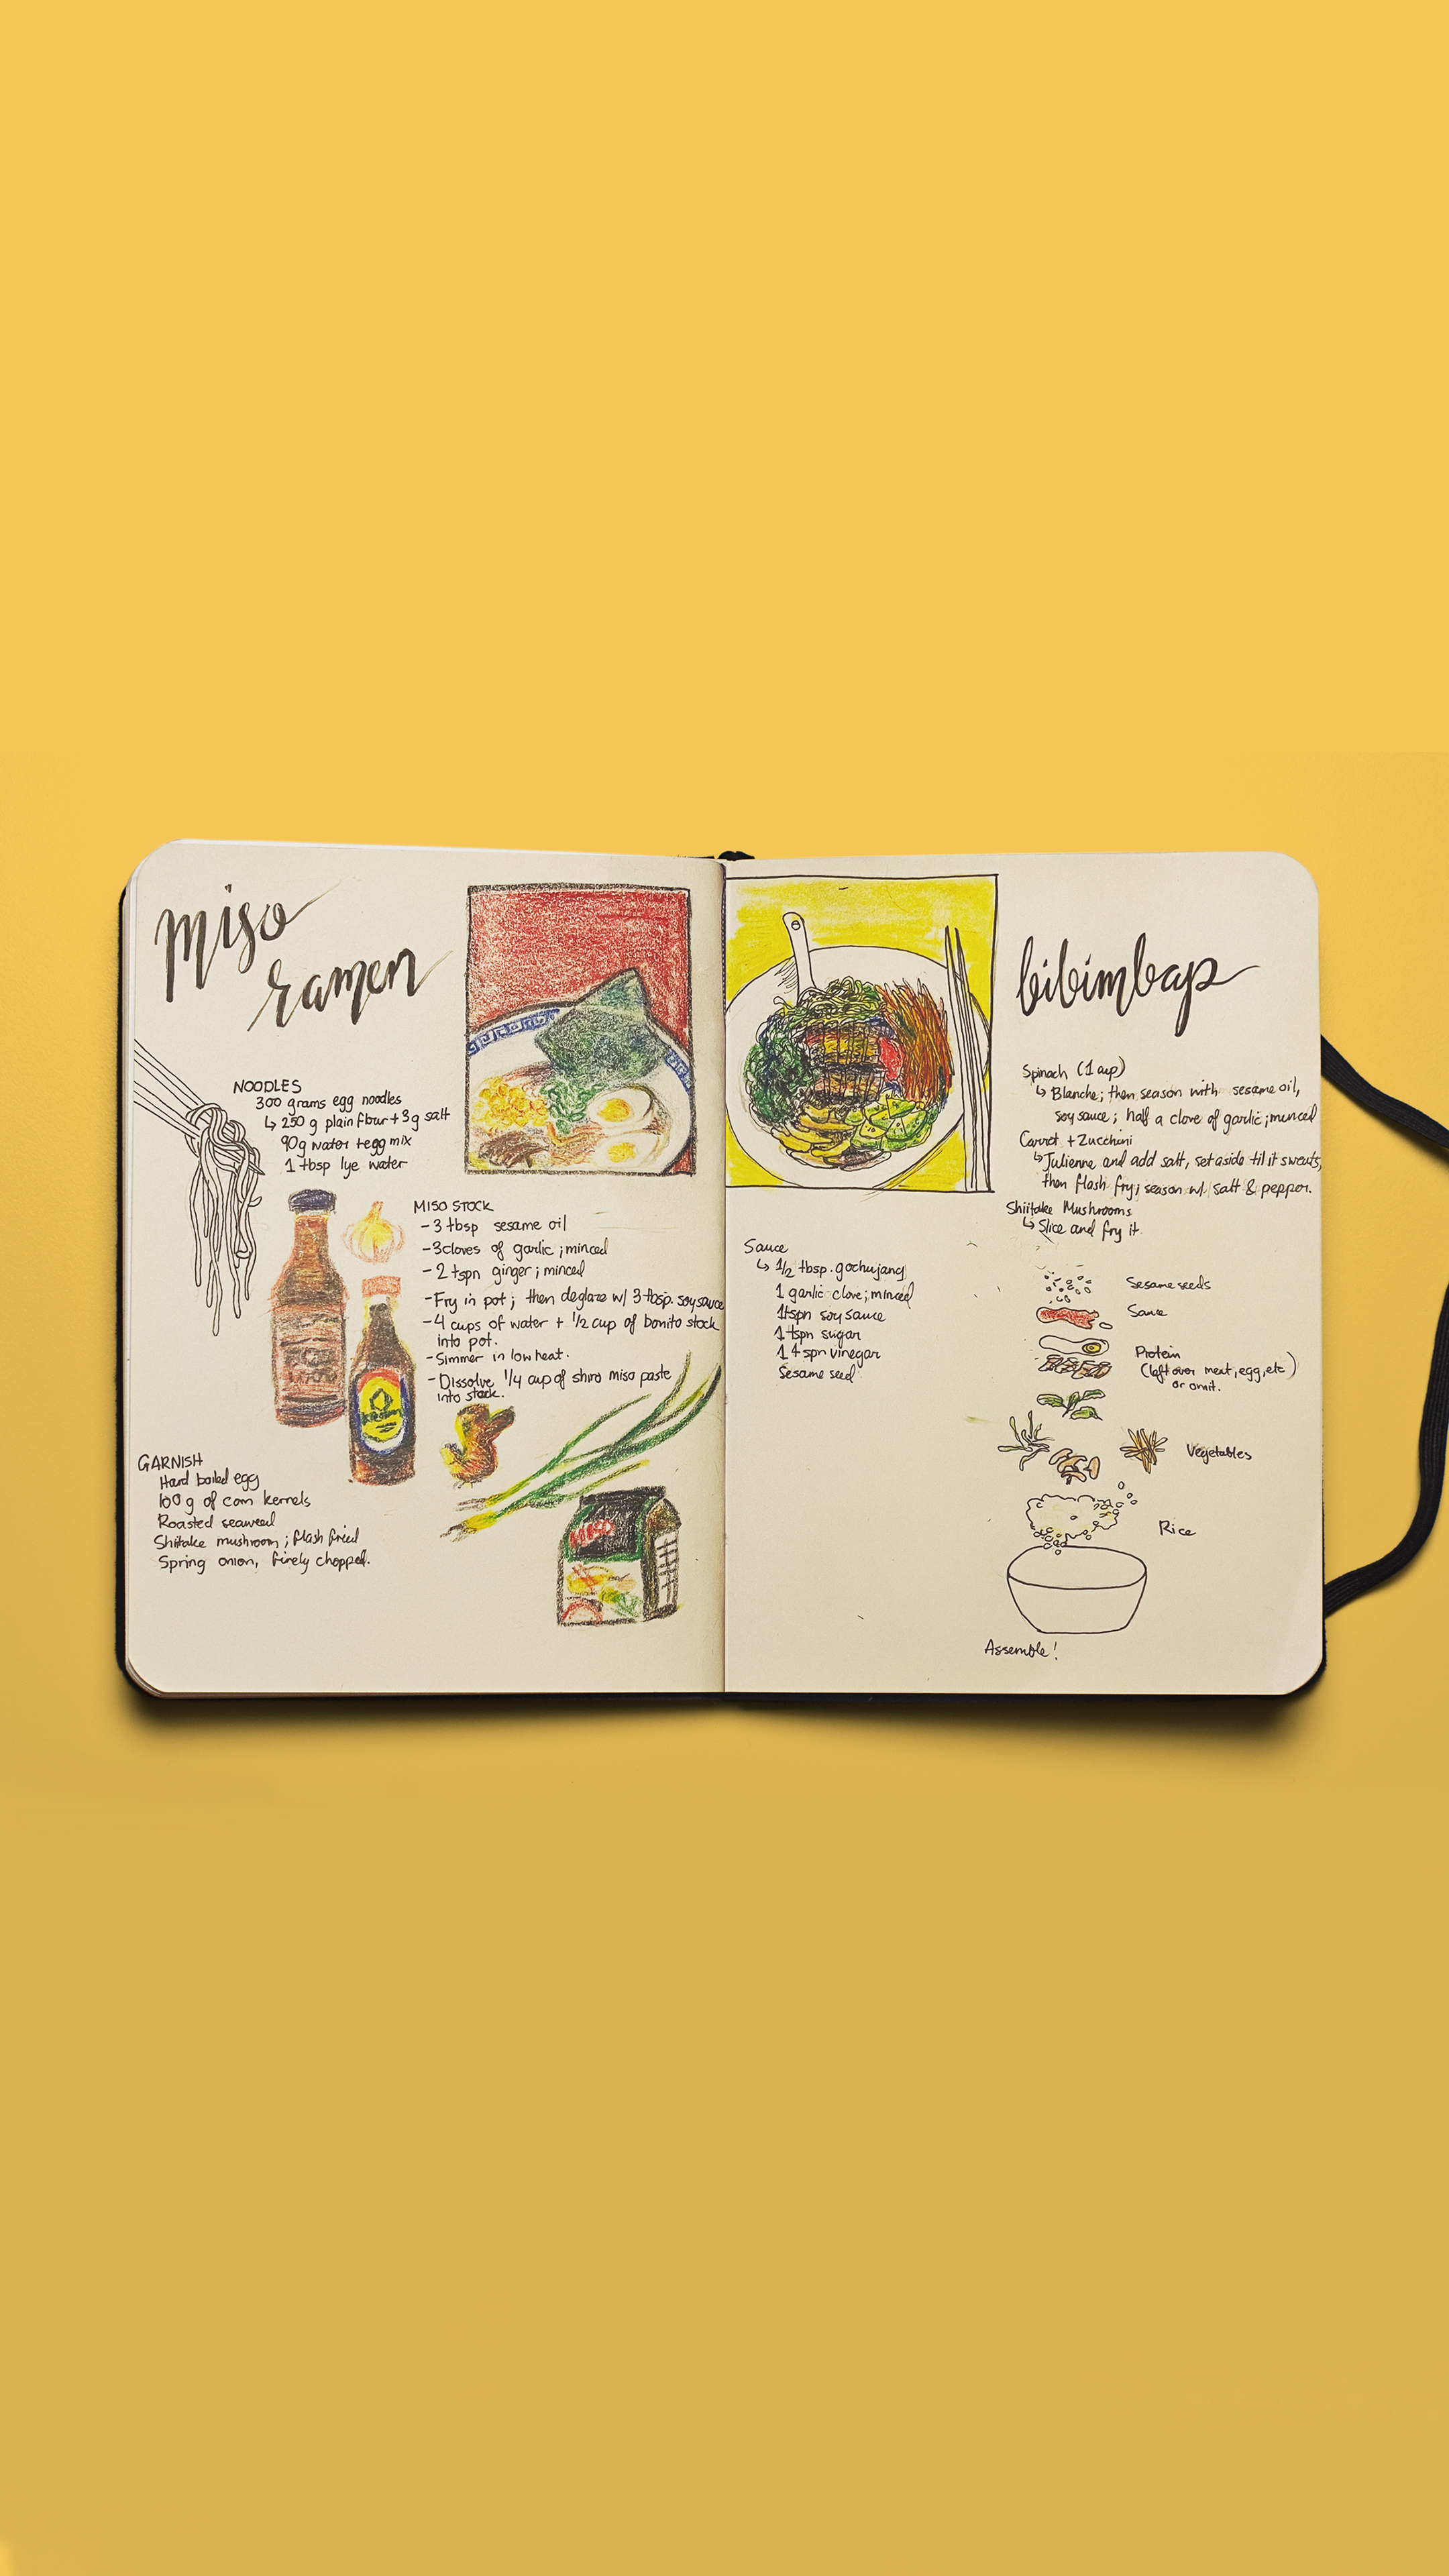 miso
ramen
NOODLES
300 grams egg noodles
↳ 250 g plain flour + 3g salt
90g water + egg mix
1 tbsp lye water
MISO STOCK
- 3 tbsp sesame oil
- 3 cloves of garlic ; minced
- 2 tspn ginger ; minced
- Fry in pot ; then deglaze w/ 3 tbsp. soy sauce
- 4 cups of water + 1/2 cup of bonito stock
into pot.
- Simmer in low heat.
- Dissolve 1/4 cup of shiro miso paste
into stock.
GARNISH
Hard boiled egg
100 g of corn kernels
Roasted seaweed
Shiitake mushroom ; flash fried
Spring onion, finely chopped.
MISO
bibimbap
Spinach (1 cup)
↳ Blanche ; then season with sesame oil,
soy sauce ; half a clove of garlic ; minced
Carrot + Zucchini
↳ Julienne and add salt, set aside til it sweats,
then flash fry ; season w/ salt & pepper.
Shiitake Mushrooms
↳ Slice and fry it
Sauce
↳ 1/2 tbsp. gochujang
1 garlic clove ; minced
1 tspn soy sauce
1 tspn sugar
1 tspn vinegar
Sesame seed
Sesame seeds
Sauce
Protein
(left over meat, egg, etc)
or omit.
Vegetables
Rice
Assemble !